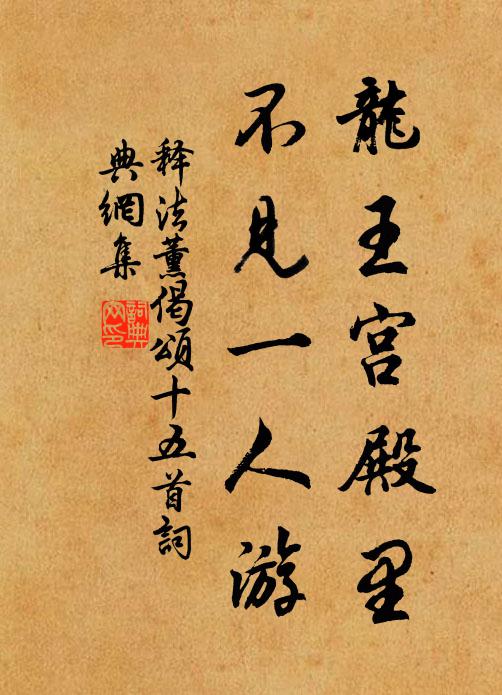 龍王宮殿里
不見一人游
释法薰偈頌十五首詞
典網集
詞典网印